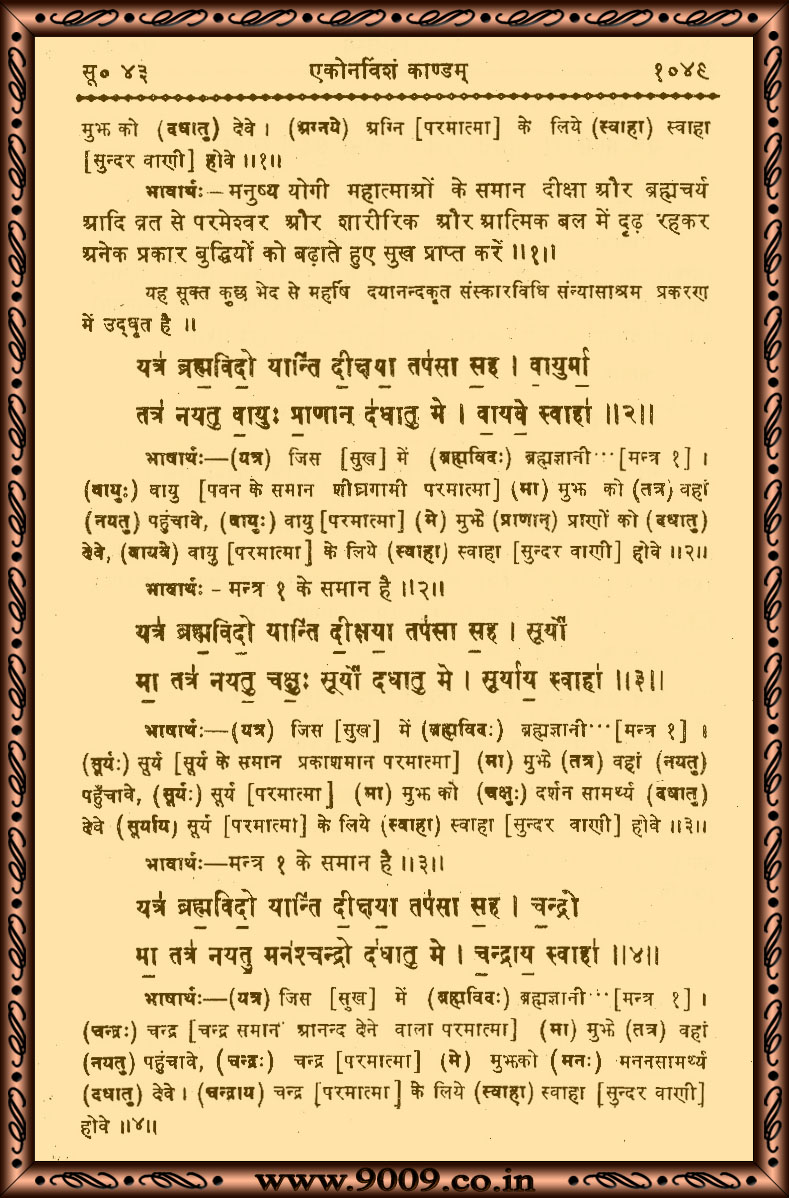 सू० ४३ एकोनविंशं काण्डम् १०४९
मुझ को (दधातु) देवे । (अग्नये) अग्नि [परमात्मा] के लिये (स्वाहा) स्वाहा
[सुन्दर वाणी] होवे ॥१॥
भावार्थः–मनुष्य योगी महात्माओं के समान दीक्षा और ब्रह्मचर्य
आदि व्रत से परमेश्वर और शारीरिक और आत्मिक बल में दृढ़ रहकर
अनेक प्रकार बुद्धियों को बढ़ाते हुए सुख प्राप्त करें ॥१॥
यह सूक्त कुछ भेद से महर्षि दयानन्दकृत संस्कारविधि संन्यासाश्रम प्रकरण
में उद्धृत है ॥
यत्र॑ ब्रह्म॒विदो॒ यान्ति॑ दी॒क्षया॒ तप॑सा स॒ह । वा॒युर्मा॒
तत्र॑ नयतु वा॒युः प्रा॒णान् द॑धातु मे । वा॒यवे॒ स्वाहा॑ ॥२॥
भाषार्थः—(यत्र) जिस [सुख] में (ब्रह्मविदः) ब्रह्मज्ञानी···[मन्त्र १] ।
(वायुः) वायु [पवन के समान शीघ्रगामी परमात्मा] (मा) मुझ को (तत्र) वहां
(नयतु) पहुंचावे, (वायुः) वायु [परमात्मा] (मे) मुझे (प्राणान्) प्राणों को (दधातु)
देवे, (वायवे) वायु [परमात्मा] के लिये (स्वाहा) स्वाहा [सुन्दर वाणी] होवे ॥२॥
भावार्थः - मन्त्र १ के समान है ॥२॥
यत्र॑ ब्रह्म॒विदो॒ यान्ति॑ दी॒क्षया॒ तप॑सा स॒ह । सूर्यो॑
मा॒ तत्र॑ नयतु॒ चक्षुः॒ सूर्यो॑ दधातु॒ मे । सूर्या॑य॒ स्वाहा॑ ॥३॥
भाषार्थः—(यत्र) जिस [सुख] में (ब्रह्मविदः) ब्रह्मज्ञानी···[मन्त्र १] ।
(सूर्यः) सूर्य [सूर्य के समान प्रकाशमान परमात्मा] (मा) मुझे (तत्र) वहां (नयतु)
पहुँचावे, (सूर्यः) सूर्य [परमात्मा] (मा) मुझ को (चक्षुः) दर्शन सामर्थ्य (दधातु)
देवे (सूर्याय) सूर्य [परमात्मा] के लिये (स्वाहा) स्वाहा [सुन्दर वाणी] होवे ॥३॥
भावार्थः—मन्त्र १ के समान है ॥३॥
यत्र॑ ब्रह्म॒विदो॒ यान्ति॑ दी॒क्षया॒ तप॑सा स॒ह । च॒न्द्रो
मा॒ तत्र॑ नयतु॒ मन॑श्चन्द्रो द॑धातु॒ मे । च॒न्द्राय॒ स्वाहा॑ ॥४॥
भाषार्थः—(यत्र) जिस [सुख] में (ब्रह्मविदः) ब्रह्मज्ञानी···[मन्त्र १] ।
(चन्द्रः) चन्द्र [चन्द्र समान आनन्द देने वाला परमात्मा] (मा) मुझे (तत्र) वहां
(नयतु) पहुंचावे, (चन्द्रः) चन्द्र [परमात्मा] (मे) मुझको (मनः) मननसामर्थ्य
(दधातु) देवे । (चन्द्राय) चन्द्र [परमात्मा] के लिये (स्वाहा) स्वाहा [सुन्दर वाणी]
होवे ॥४॥
www.9009.co.in